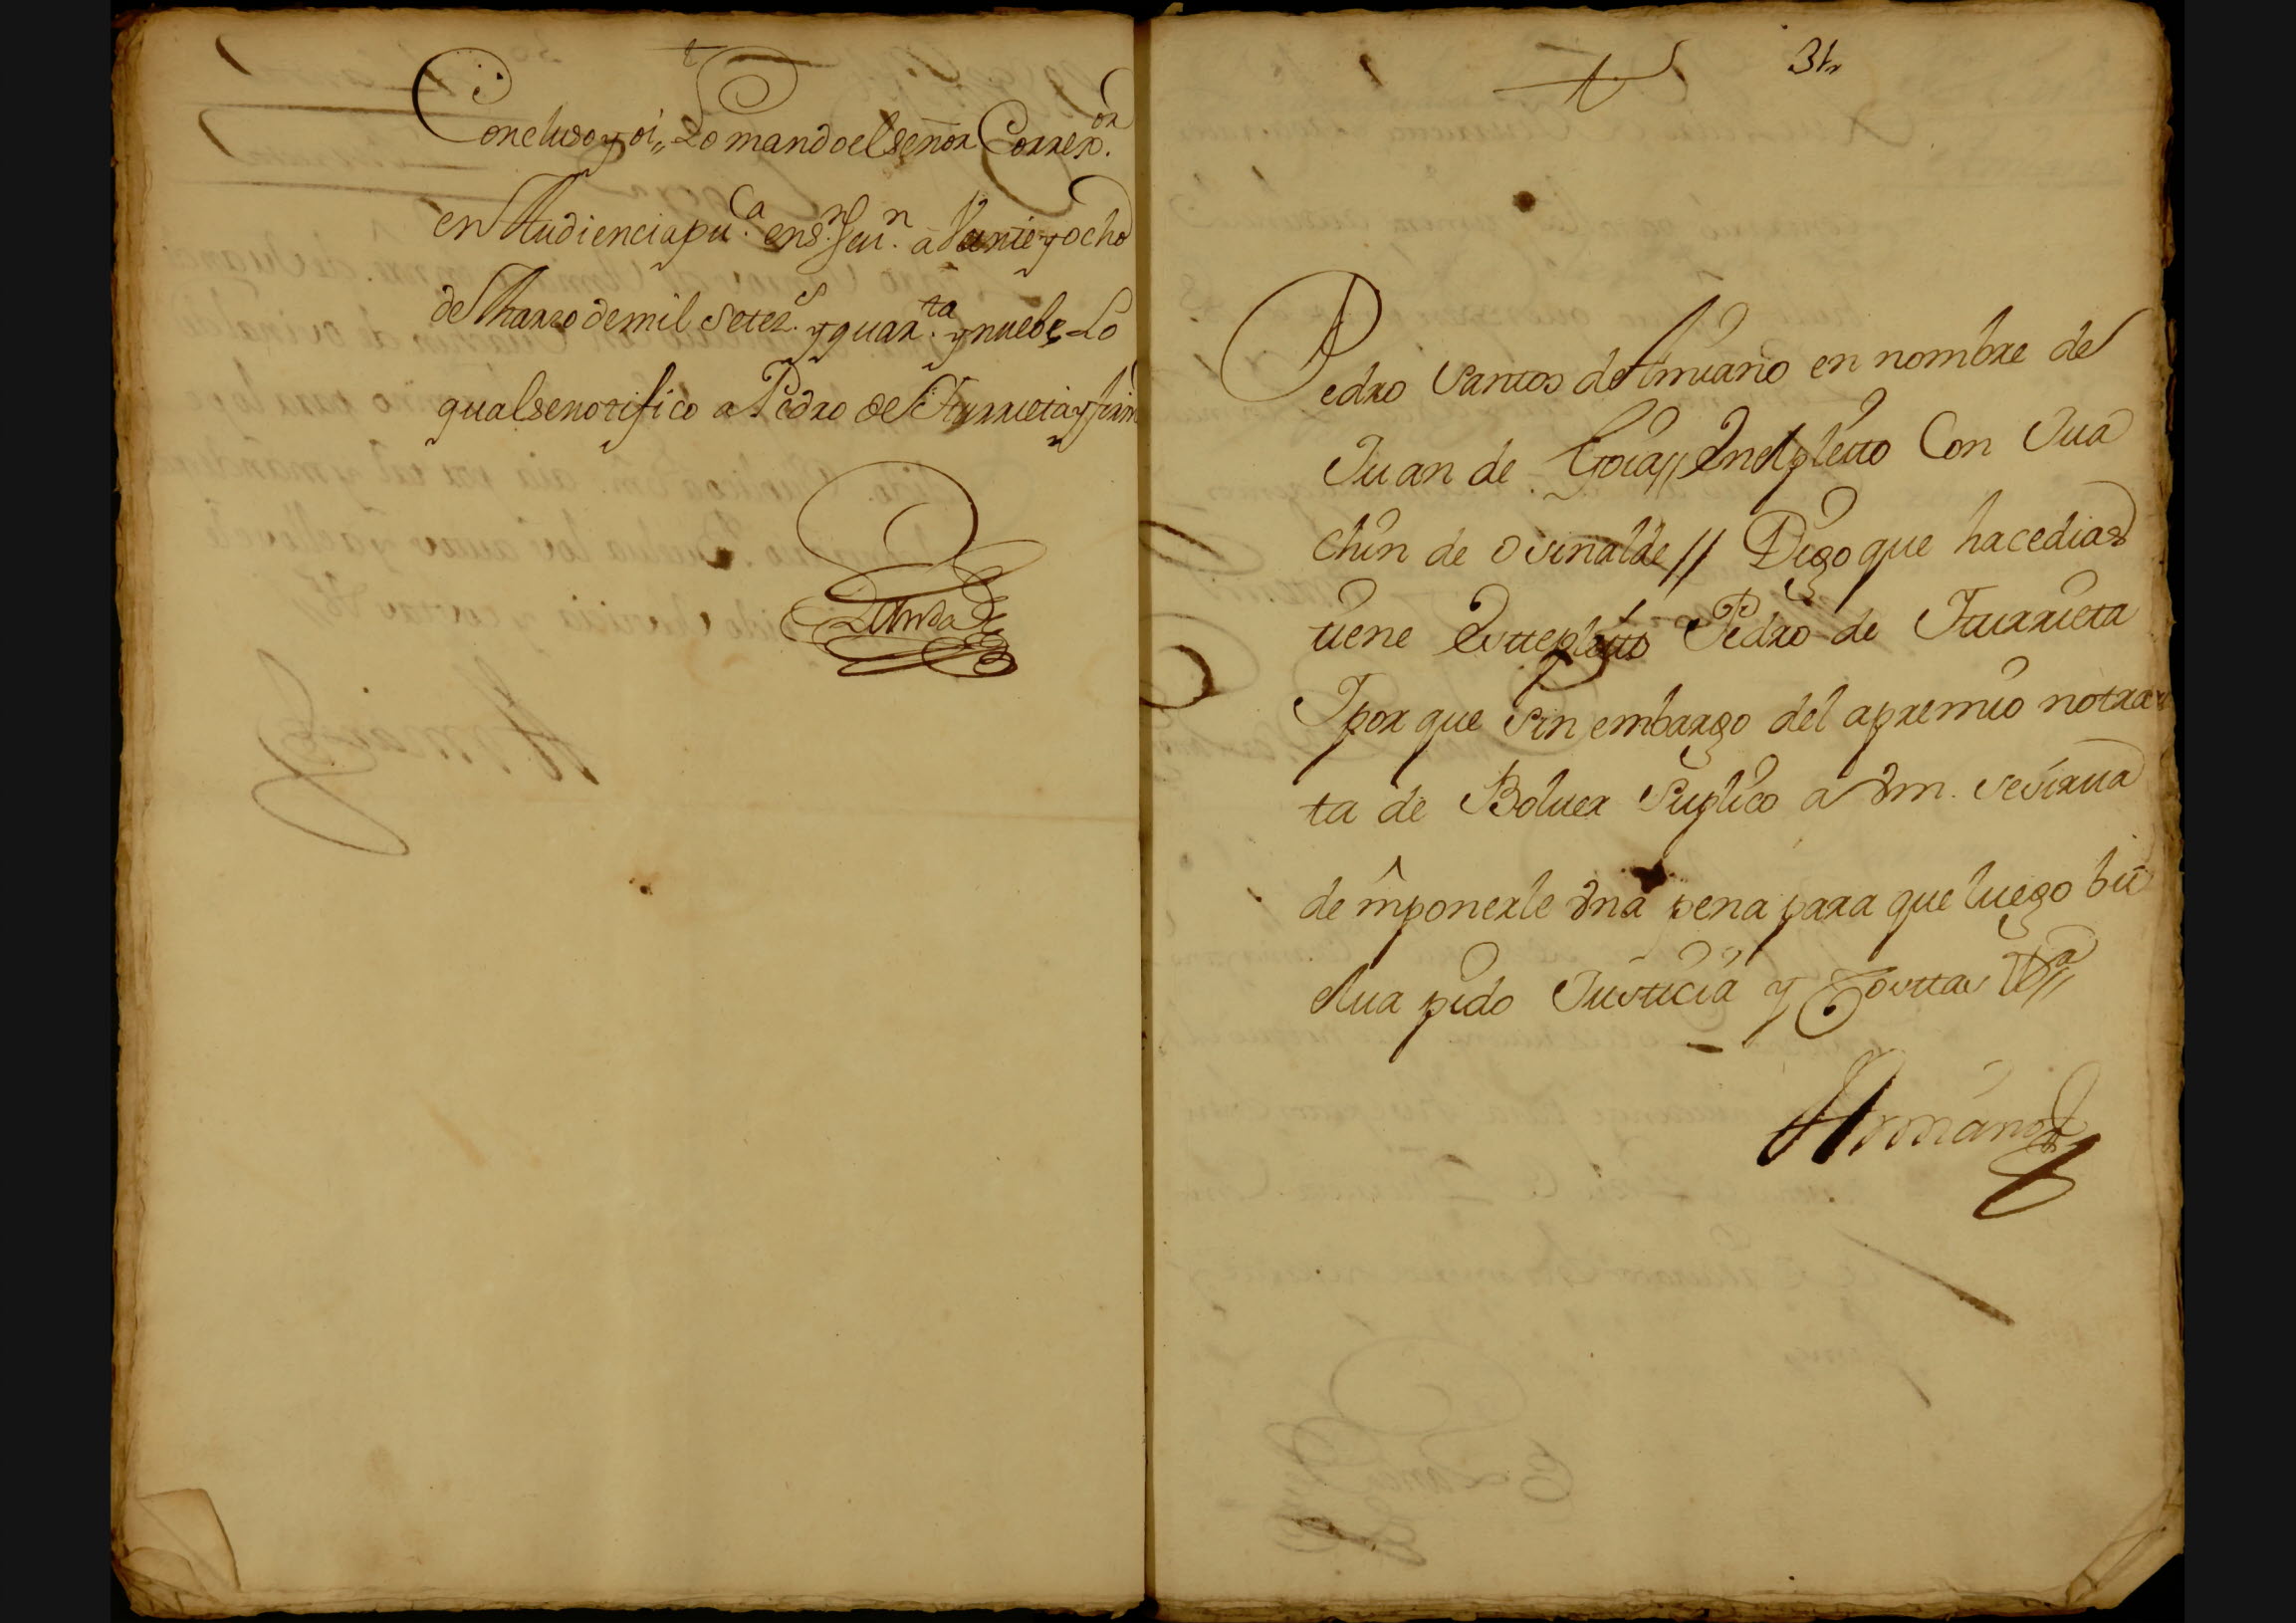 Concluso y oi,, Lo mando el señor Correx.or
en Audiencia pu.ca en S.n Seu.n a Veinte y ocho
de Marzo de mil setez.s y quar.ta y nuebe Lo
qual se notifico a Pedro de Iturrieta y firm
Landa
31
Pedro Santos de Amiano en nombre de
Juan de Goia // En el pleito Con Jua
chin de Osinalde // Digo que hace dias
tiene este pleito Pedro de Iturrieta
I por que sin embargo del apremio no tra
ta de Bolver Suplico a Vm. se sirva
de imponerle Una pena para que luego bu
elva pido Justicia y Costtas V.a //
Amiano